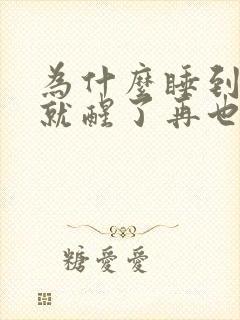 為什麼睡到
就醒了再也
糖愛愛